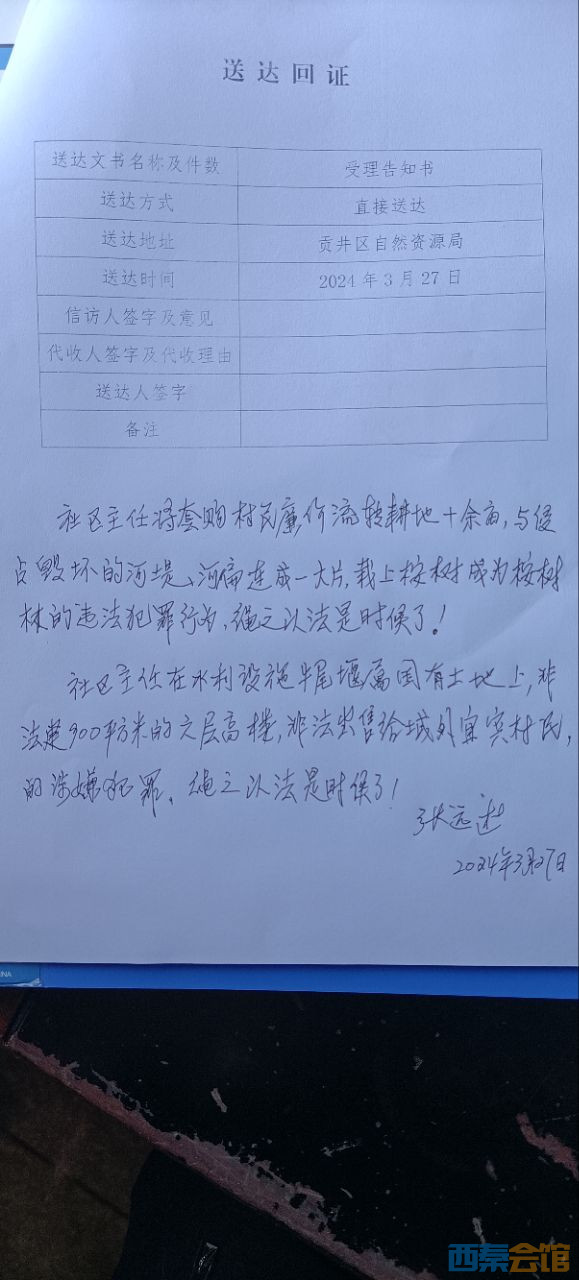 送达回证
送达文书名称及件数 受理告知书
送达方式 直接送达
送达地址 贡井区自然资源局
送达时间 2024年3月27日
信访人签字及意见
代收人签字及代收理由
送达人签字
备注
社区主任将套购村民廉价流转耕地十余亩,与侵
占毁坏的河堤、河扁连成一大片,栽上桉树成为桉树
林的违法犯罪行为,绳之以法是时候了!
社区主任在水利设施牛尾堰属国有土地上,非
法建900平方米的六层高楼,非法出售给域外宜宾村民,
的涉嫌犯罪、绳之以法是时候了!
张远
2024年3月27日
INA
西秦会馆